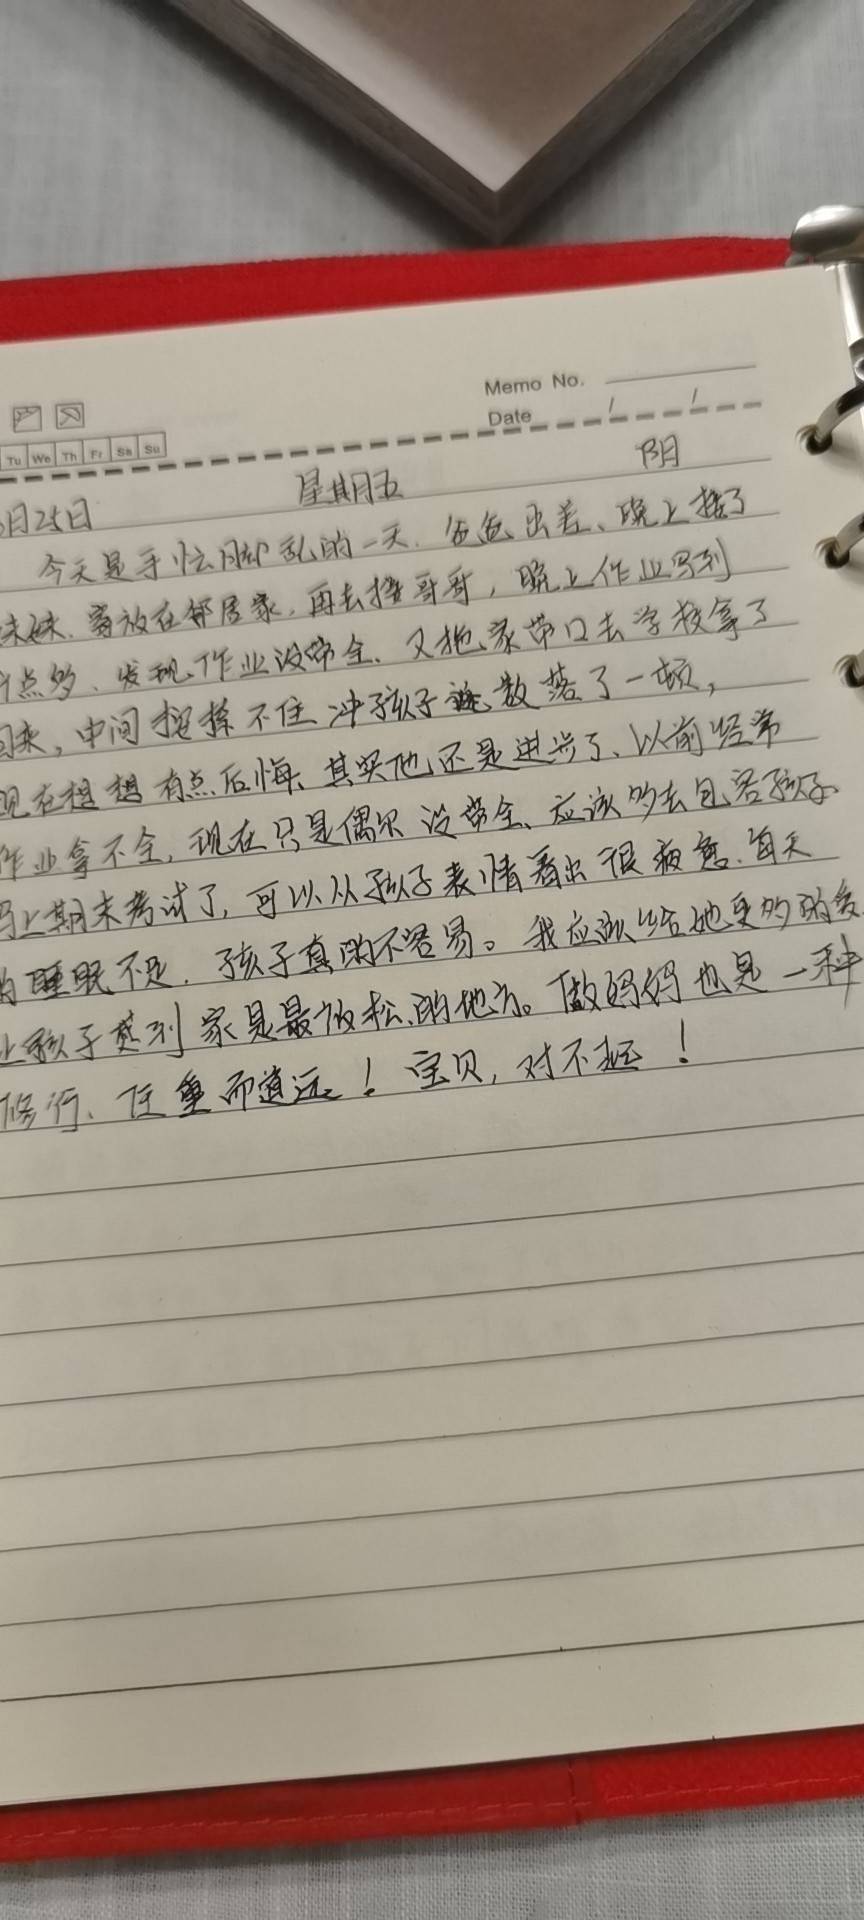 Memo No.
Date / /
Tu We Th Fr Sa Su
月25日 星期五 阴
今天是手忙脚乱的一天. 爸爸出差、晚上接了
妹妹. 寄放在邻居家. 再去接哥哥, 晚上作业写到
点多、发现作业没带全、又拖家带口去学校拿了
回来, 中间 不住 冲孩子 数落了一顿,
现在想想有点后悔、其实他还是进步了、以前经常
作业拿不全, 现在只是偶尔没带全、应该多去包容孩子.
马上期末考试了, 可以从孩子表情看出很疲惫. 每天
的睡眠不足. 孩子真的不容易。我应该给她更多的爱.
让孩子感到家是最放松的地方。做妈妈也是一种
修行、任重而道远! 宝贝, 对不起!